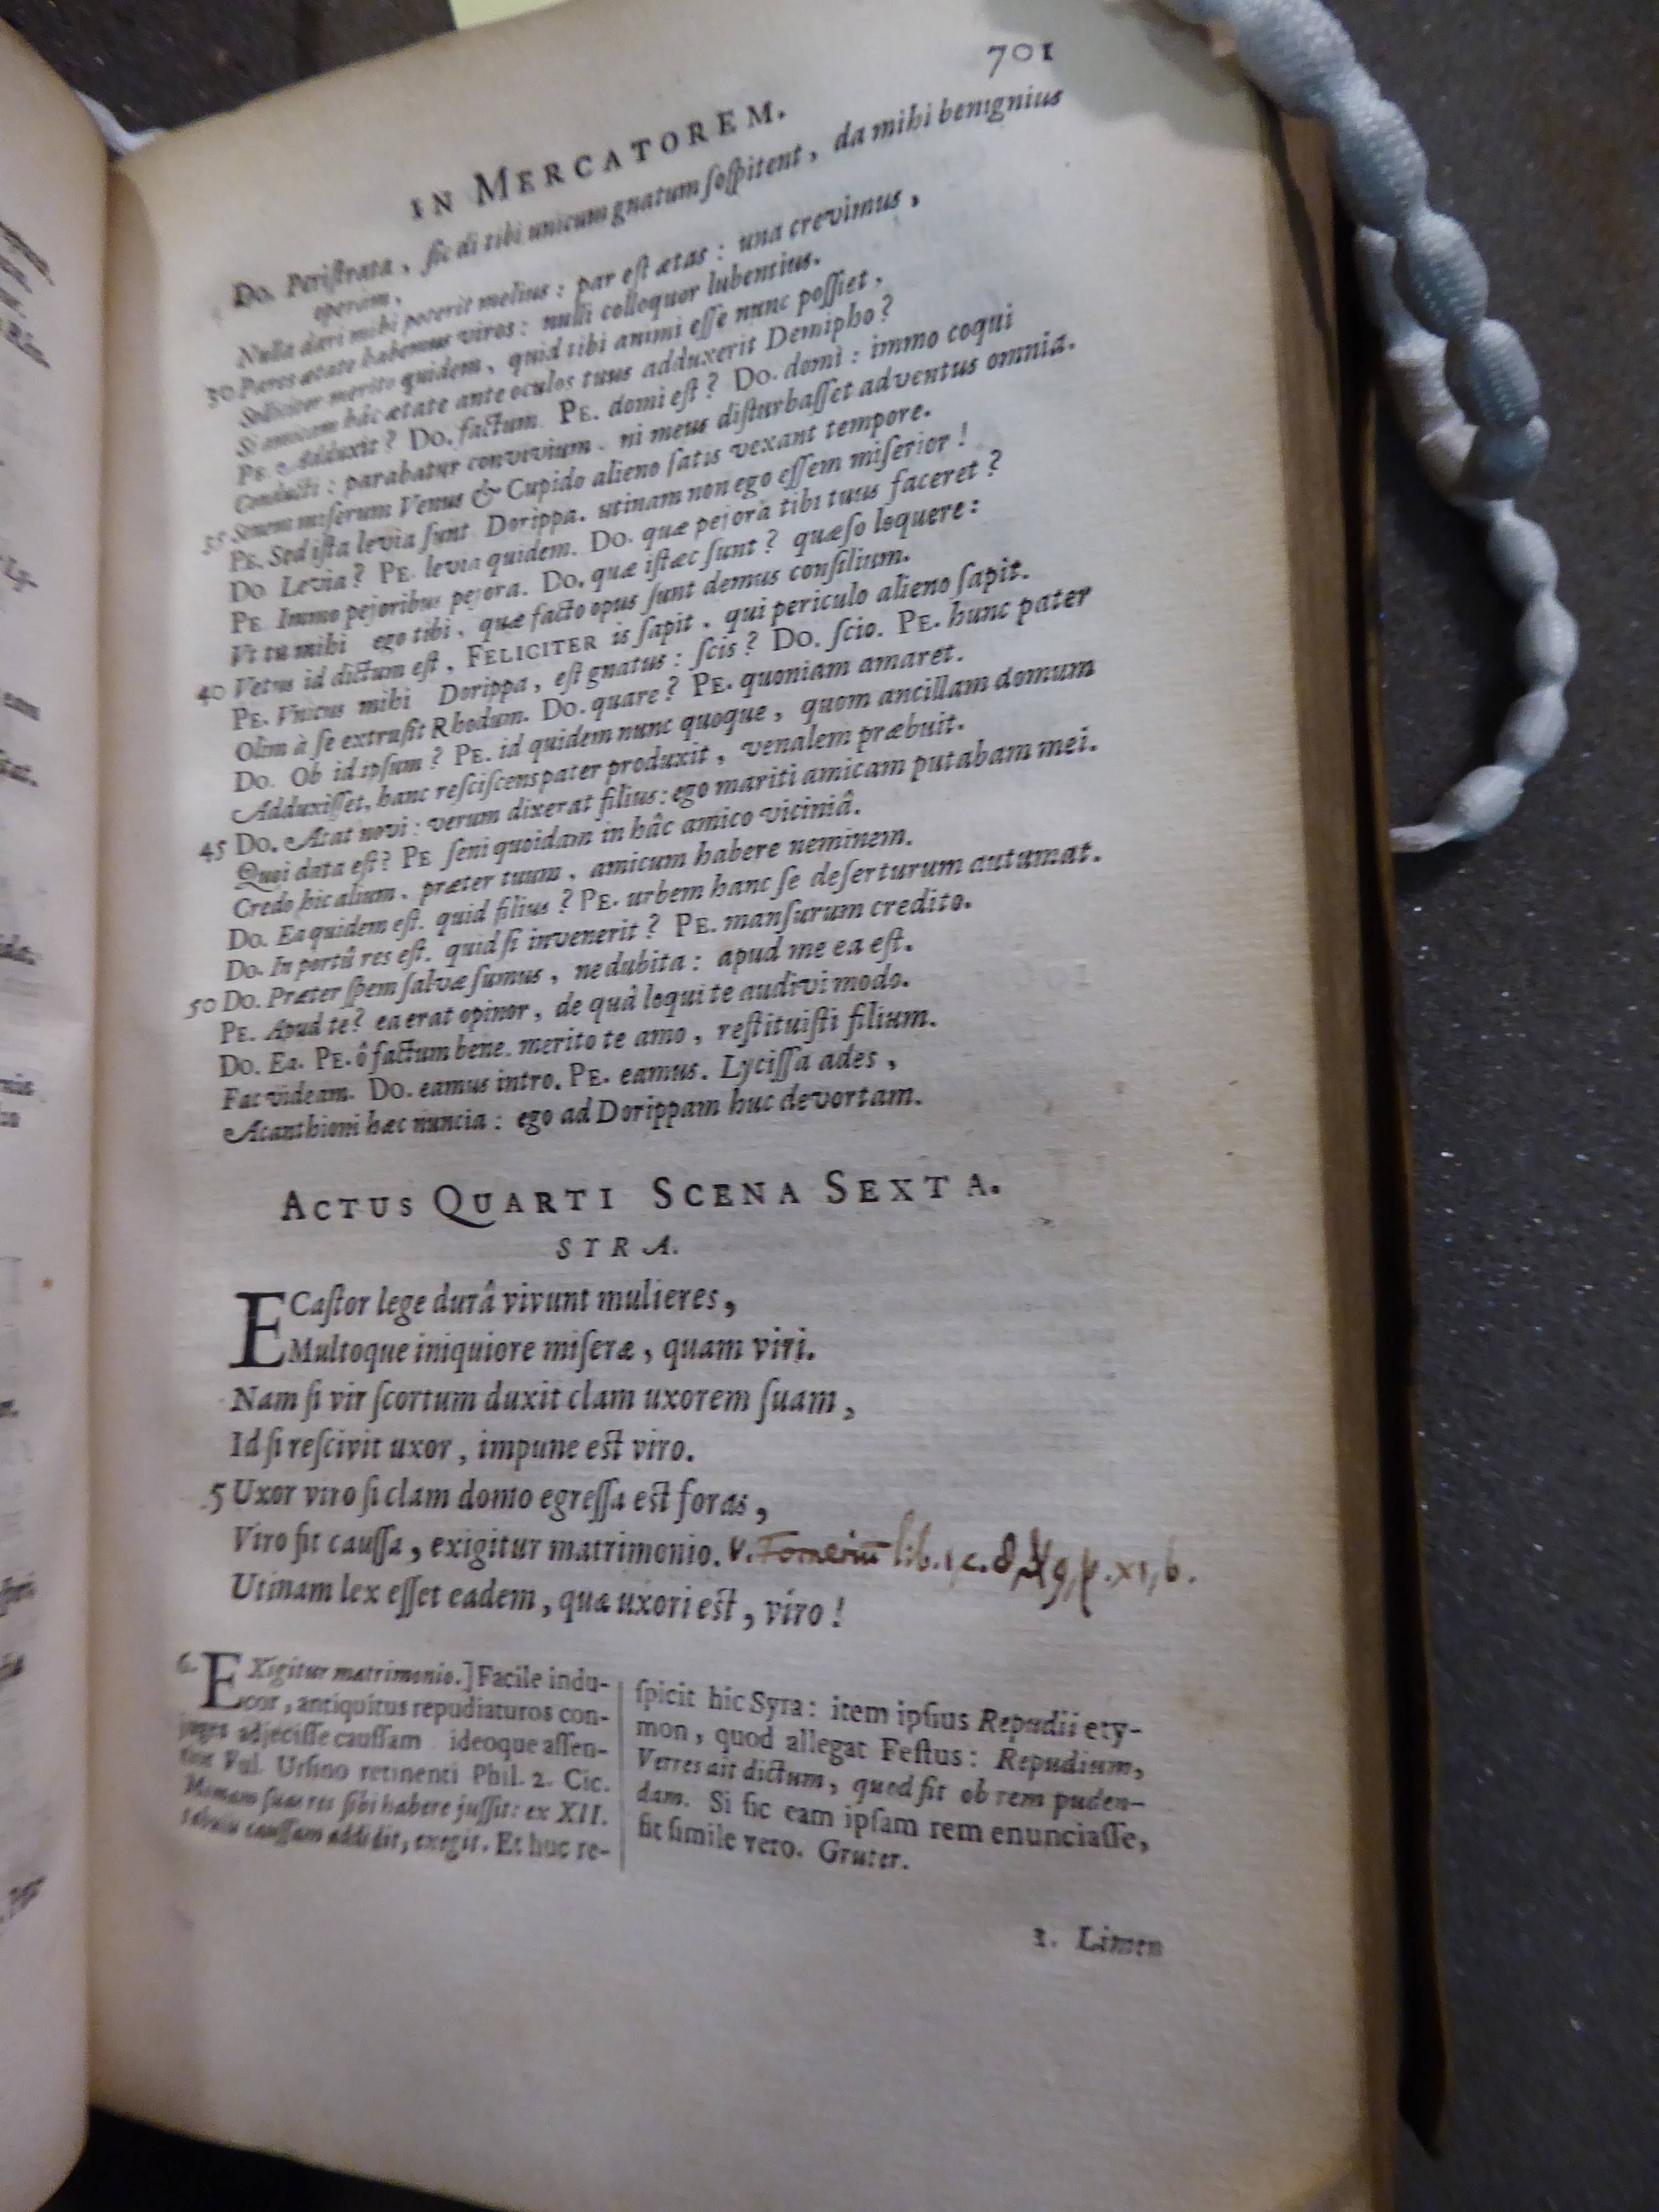 701
IN MERCATOREM.
Do. Peristrata, sic di tibi unicum gnatum sospitent, da mihi benignius
operam,
Nulla dari mihi poterit melius: par est ætas: una crevimus,
30 Pares ætate habemus viros: nulli colloquor lubentius.
Sollicitor merito quidem, quid tibi animi esse nunc possiet,
Si amicam hâc ætate ante oculos tuus adduxerit Demipho?
PE. Adduxit? Do. factum. PE. domi est? Do. domi: immo coqui
Conducti: parabatur convivium. ni meus disturbasset adventus omnia.
35 Senem miserum Venus & Cupido alieno satis vexant tempore.
PE. Sed ista levia sunt Dorippa. utinam non ego essem miserior!
Do Levia? PE. levia quidem. Do. quæ pejora tibi tuus faceret?
PE Immo pejoribus pejora. Do. quæ istæc sunt? quæso loquere:
Vt tu mihi ego tibi, quæ facto opus sunt demus consilium.
40 Vetus id dictum est, FELICITER is sapit, qui periculo alieno sapit.
PE. Vnicus mihi Dorippa, est gnatus: scis? Do. scio. PE. hunc pater
Olim à se extrusit Rhodum. Do. quare? PE. quoniam amaret.
Do. Ob id ipsum? PE. id quidem nunc quoque, quom ancillam domum
Adduxisset, hanc resciscens pater produxit, venalem præbuit.
45 Do. Atat novi: verum dixerat filius: ego mariti amicam putabam mei.
Quoi data est? PE seni quoidam in hâc amico viciniâ.
Credo hic alium, præter tuum, amicum habere neminem.
Do. Ea quidem est. quid filius? PE. urbem hanc se deserturum autumat.
Do. In portû res est. quid si invenerit? PE. mansurum credito.
50 Do. Præter spem salvæ sumus, ne dubita: apud me ea est.
PE. Apud te? ea erat opinor, de quâ loqui te audivi modo.
Do. Ea. PE. ô factum bene. merito te amo, restituisti filium.
Fac videam. Do. eamus intro. PE. eamus. Lycissa ades,
Acanthioni hæc nuncia: ego ad Dorippam huc devortam.
ACTUS QUARTI SCENA SEXTA.
STRA.
ECastor lege durâ vivunt mulieres,
Multoque iniquiore miseræ, quam viri.
Nam si vir scortum duxit clam uxorem suam,
Id si rescivit uxor, impune est viro.
5 Uxor viro si clam domo egressa est foras,
Viro fit caussa, exigitur matrimonio. v. lib. 1 c. 8 p. xi, b.
Utinam lex esset eadem, quæ uxori est, viro!
6. EXigitur matrimonio.] Facile indu-
cor, antiquitus repudiaturos con-
juges adjecisse caussam ideoque assen-
tior Ful. Ursino retinenti Phil. 2. Cic.
Mimam suas res sibi habere jussit: ex XII.
tabulis caussam addidit, exegit. Et huc re-
spicit hic Syra: item ipsius Repudii ety-
mon, quod allegat Festus: Repudium,
Verres ait dictum, quod fit ob rem puden-
dam. Si sic eam ipsam rem enunciasse,
fit simile vero. Gruter.
1. Limen